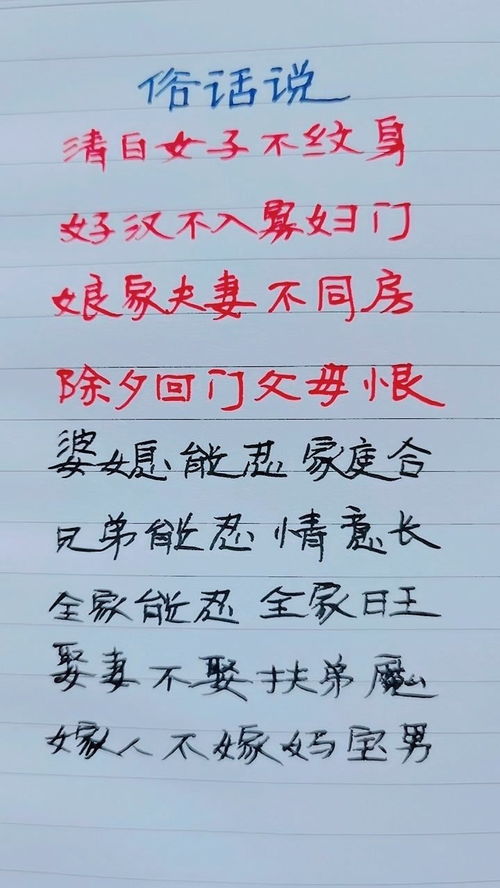 俗话说
清白女子不纹身
好汉不入寡妇门
娘家夫妻不同房
除夕回门父母恨
婆媳能忍家庭合
兄弟能忍情意长
全家能忍全家旺
娶妻不娶扶弟魔
嫁人不嫁妈宝男